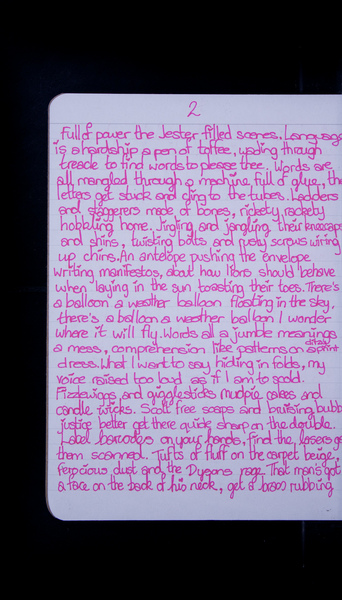 2
Full of power the Jester filled scenes. Language
is a hardship a pen of toffee, wading through
treacle to find words to please thee. Words are
all mangled through a machine full of glue, the
letters get stuck and cling to the tubes. Ladders
and staggerers made of bones, rickety rackety
hobbling home. Jingling and jangling their kneecaps
and shins, twisting bolts and rusty screws wiring
up chins. An antelope pushing the envelope
writing manifestos, about how lions should behave
when laying in the sun toasting their toes. There's
a balloon a weather balloon floating in the sky,
there's a balloon a weather balloon I wonder
where it will fly. Words all a jumble meanings
a mess, comprehension like patterns on a ditsy print
dress. What I want to say hiding in folds, my
voice raised too loud as if I am to scold.
Fizzlewings and gigglesticks mudpie cakes and
candle wicks. Scott free soaps and bruising bubb
justice better get there quick sharp on the double.
Label barcodes on your hands, find the lasers get
them scanned. Tufts of fluff on the carpet beige,
ferocious dust and the Dysons rage. That man's got
a face on the back of his neck, get a brass rubbing